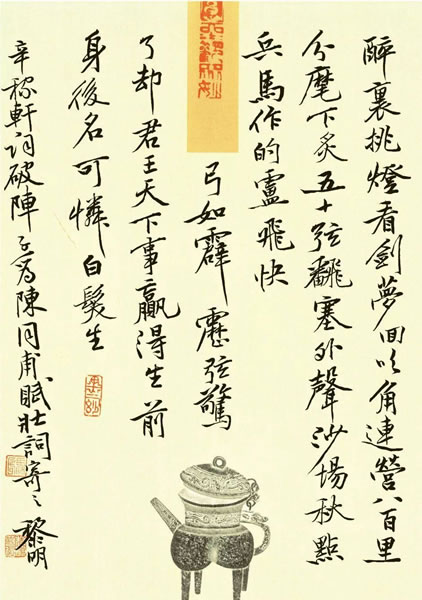 醉裏挑燈看劍夢回吹角連營八百里
分麾下炙五十弦翻塞外聲沙場秋點
兵馬作的盧飛快
弓如霹靂弦驚
了却君王天下事贏得生前
身後名可憐白髮生
辛稼軒詞破陣子為陳同甫賦壯詞寄之 黎明